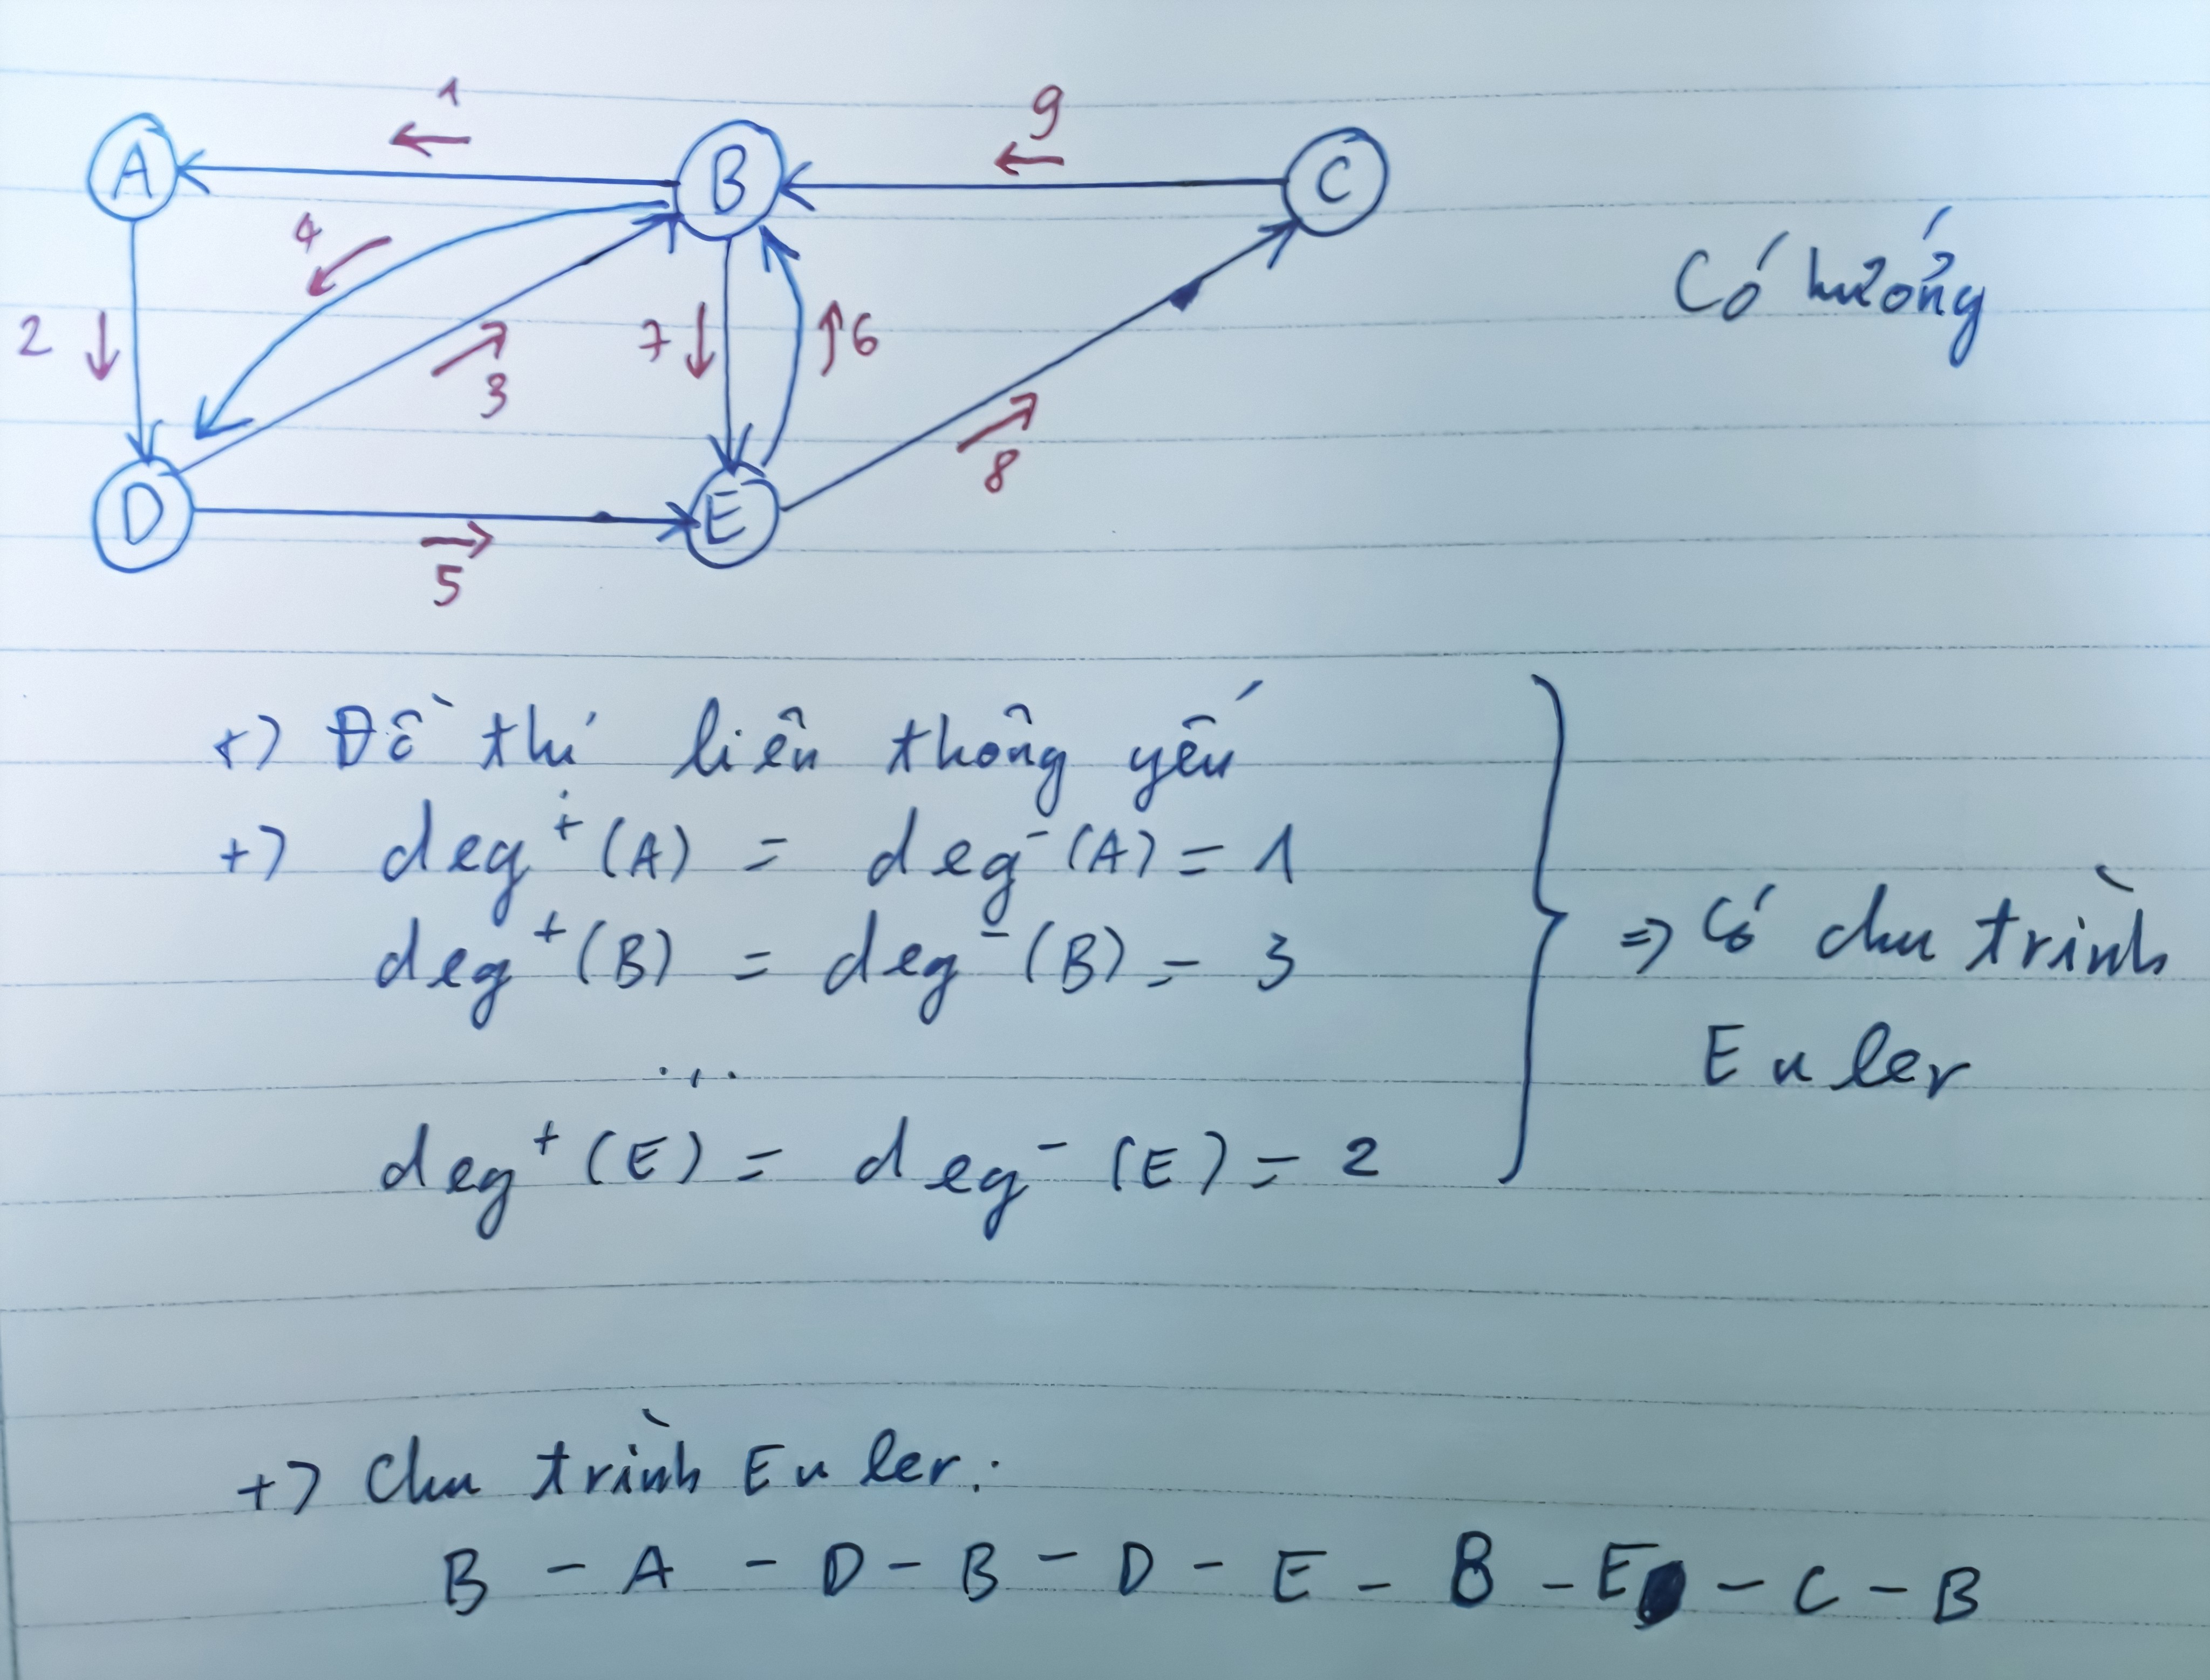 1
9
A
B
C
4
Có hướng
2
3
7
6
8
D
E
5
+) Đồ thị liên thông yếu
+) deg⁺(A) = deg⁻(A) = 1
deg⁺(B) = deg⁻(B) = 3
...
deg⁺(E) = deg⁻(E) = 2
=> Có chu trình
Euler
+) Chu trình Euler:
B - A - D - B - D - E - B - E - C - B